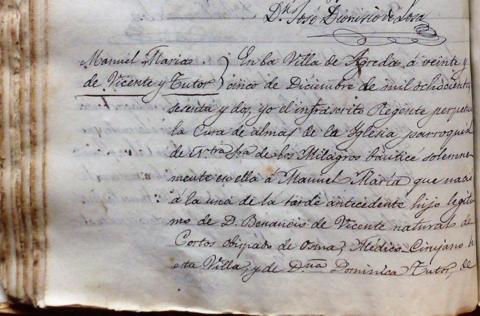 Dn. José Dionisio de Sosa
Manuel Maria
de Vicente y Tutor
En la Villa de Agreda, á veinte y
cinco de Diciembre de mil ochocientos
sesenta y dos, yo el infrascrito Regente
la Cura de almas de la Iglesia parroquial
de Ntra. Sra. de los Milagros bauticé solemne
mente en ella á Manuel Maria que nació
á la una de la tarde antecedente hijo legiti
mo de D. de Vicente natural de
Cortos obispado de Osma, Médico-Cirujano de
esta Villa, y de Dña Dominica Tutor, de